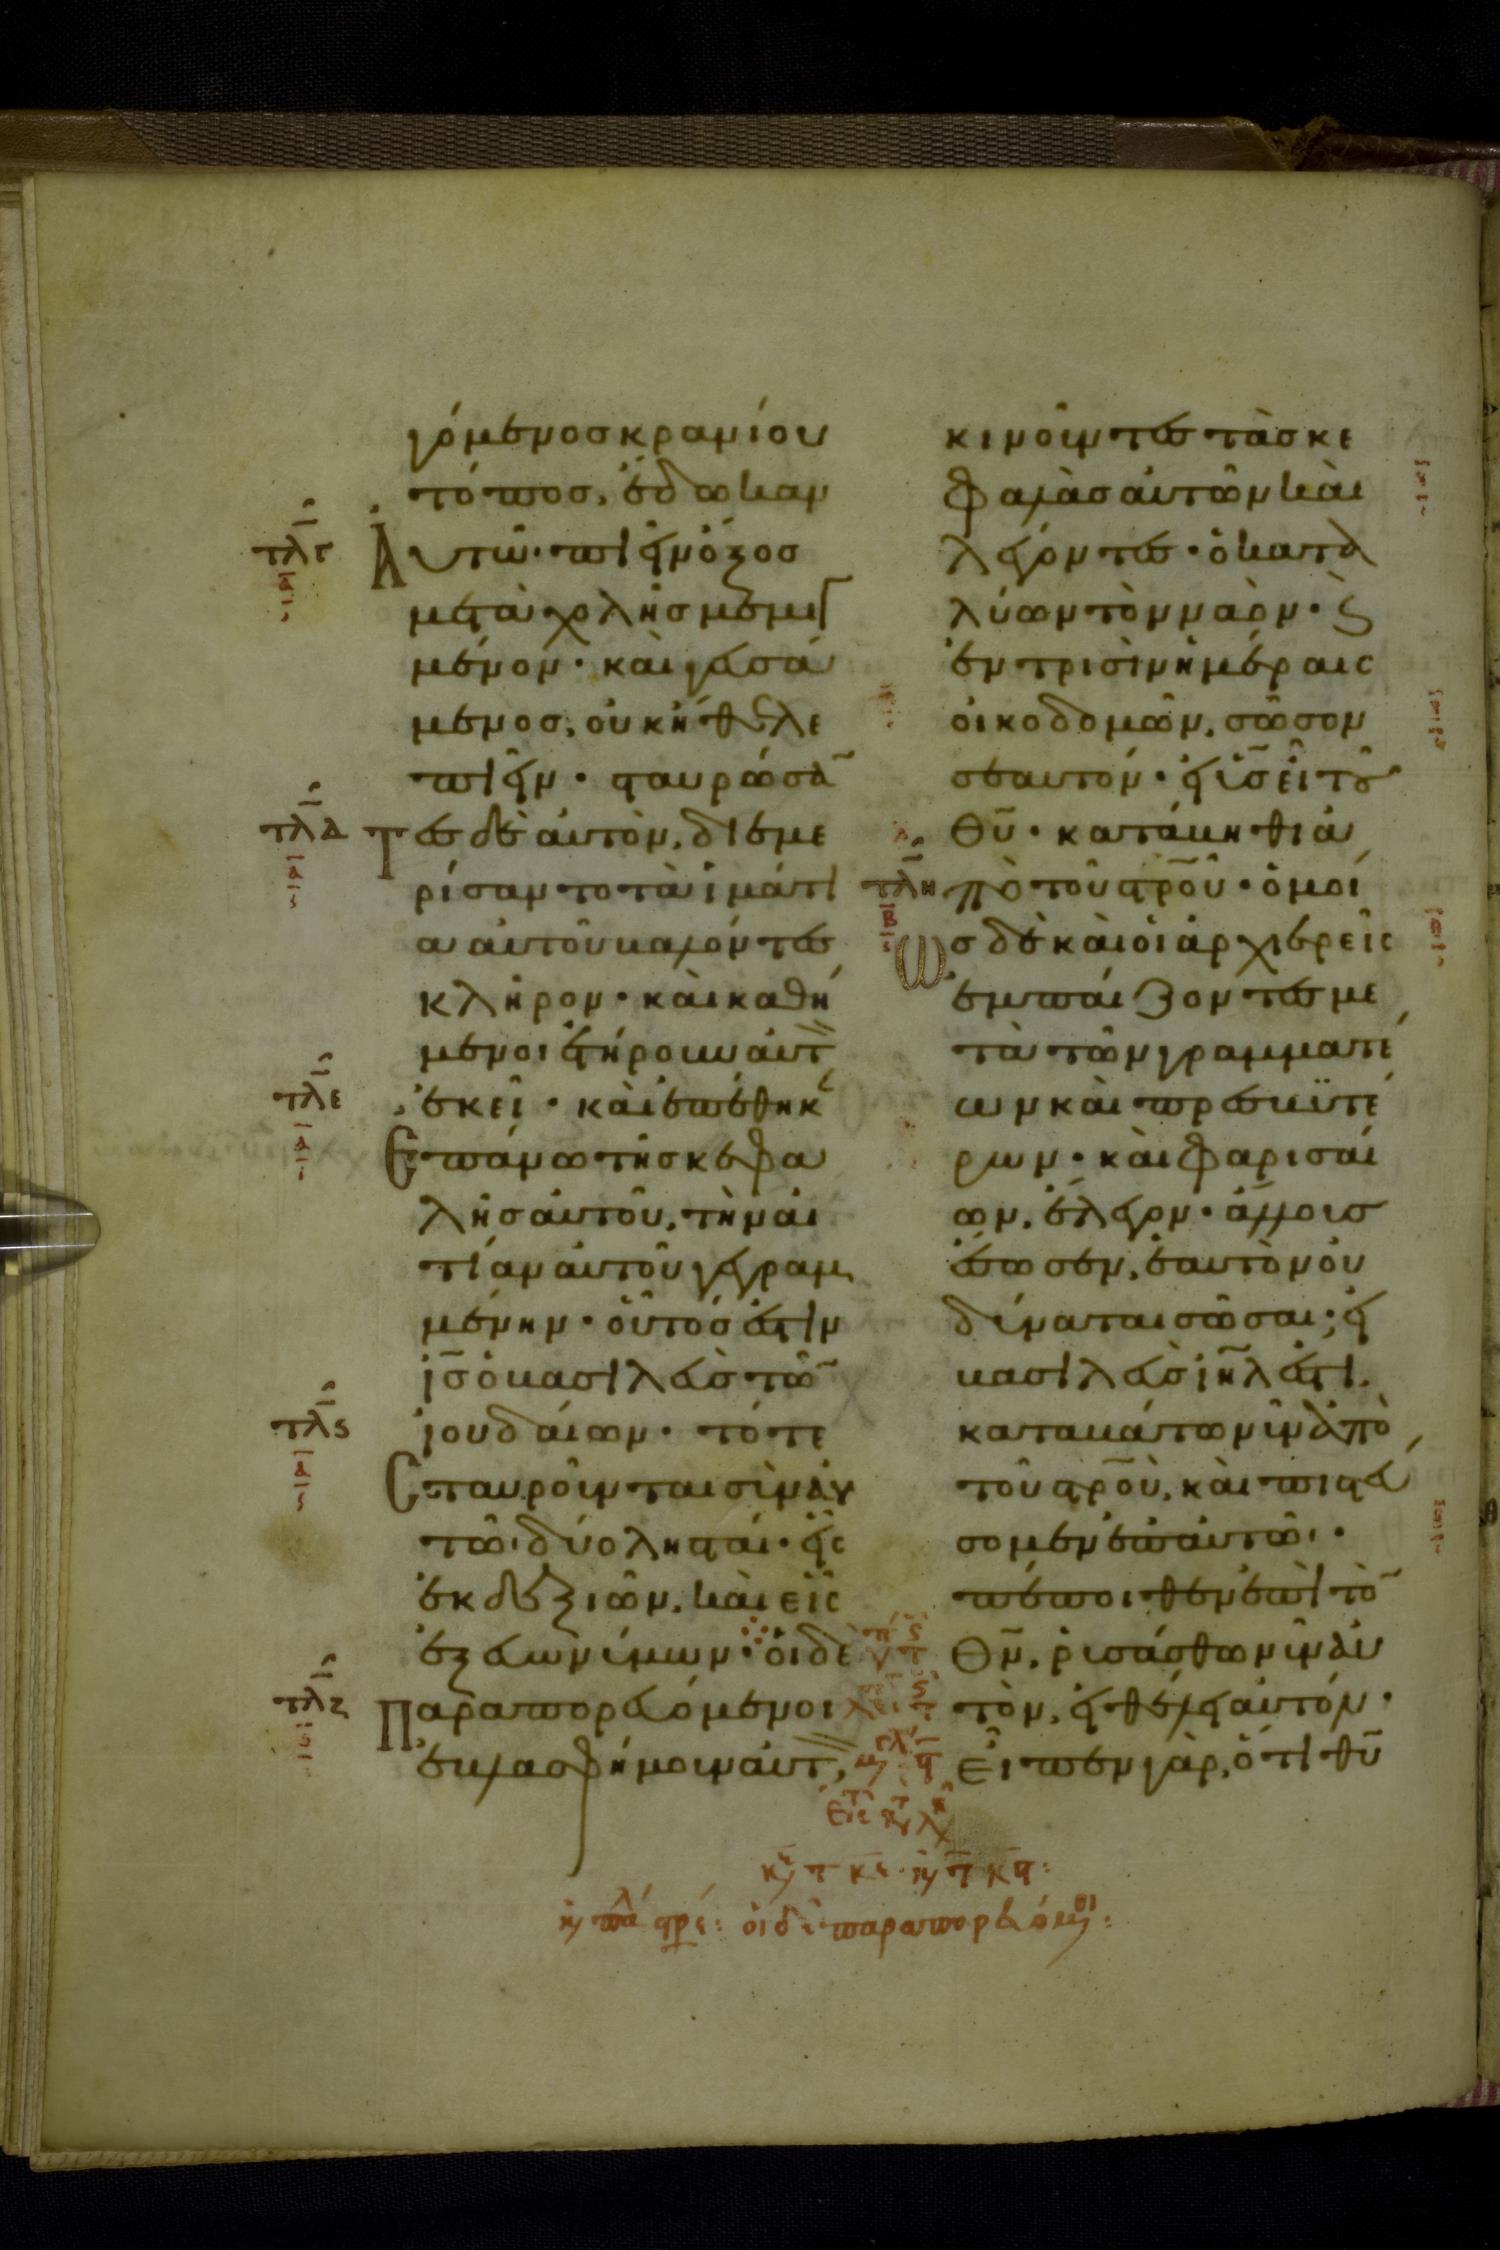 γόμενος κρανίου
τόπος, ἔδωκαν
τλγ
Ἀυτῶ· πιεῖν ὄξος
μετὰ χολῆς μεμιγ
μένον· καὶ γευσά
μενος, οὐκ ἤθελε
πιεῖν· σταυρώσα̃
τλδ
Τες δὲ ἀυτὸν, διεμε
ρίσαντο τὰ ἱμάτι
α ἀυτοῦ βαλόντες
κλῆρον· κὰι καθή
μενοι ἐτήρουν ἀυτ
τλε
ἐκεῖ· κὰι ἐπέθηκ
Ἐπάνω τῆς κεφα
λῆς ἀυτοῦ, τὴν ἀι
τίαν ἀυτοῦ γεγραμ
μένην· οὗτός ἐστιν
ι̅ς̅ ὁ βασιλεὺς τῶ̃
τλς
ἰουδάιων· τότε
Σταυροῦνται σὺν ἀυ
τῶ· δύο λησταί· εἷς
ἐκ δεξιῶν, κὰι εἷς
ἐξ εὐωνύμων· ὁι δὲ
τλζ
Παραπορευόμενοι
ἐβλασφήμουν ἀυτ,
κινοῦντες τὰς κε
φαλὰς ἀυτῶν κὰι
λέγοντες· ὁ κατα
λύων τὸν ναὸν· ϗ
ἐν τρισὶν ἡμέραις
οἰκοδομῶν, σῶσον
σεαυτόν· εἰ υ̅ς̅ εἶ τοῦ
θ̅υ̅· κατάβηθι ἀ
τλη
πὸ τοῦ στρ̅οῦ· ὁμοί
β
Ὡς δὲ κὰι ὁι ἀρχιερεῖς
ἐμπάιζοντες με
τὰ τῶν γραμματέ
ων κὰι πρεσβϋτέ
ρων· κὰι φαρισαί
ων, ἔλεγον· ἄλλους
ἔσωσεν, ἑαυτὸν ὀυ
δύναται σῶσαι; εἰ
βασιλεὺς ἰη̅λ ἐστι.
καταβάτω νῦν ἀπὸ
τοῦ στρ̅οὺ, κὰι πιστεύ
σομεν ἐπ ἀυτῶ·
πέποιθεν ἐπὶ τὸ̃
θ̅ν̅, ῥυσάσθω νῦν ἀυ
τὸν, εἰ θέλει ἀυτόν·
Εἶπεν γὰρ, ὅτι θ̅υ̅
ὁι δὲ παραπορευόμενοι: